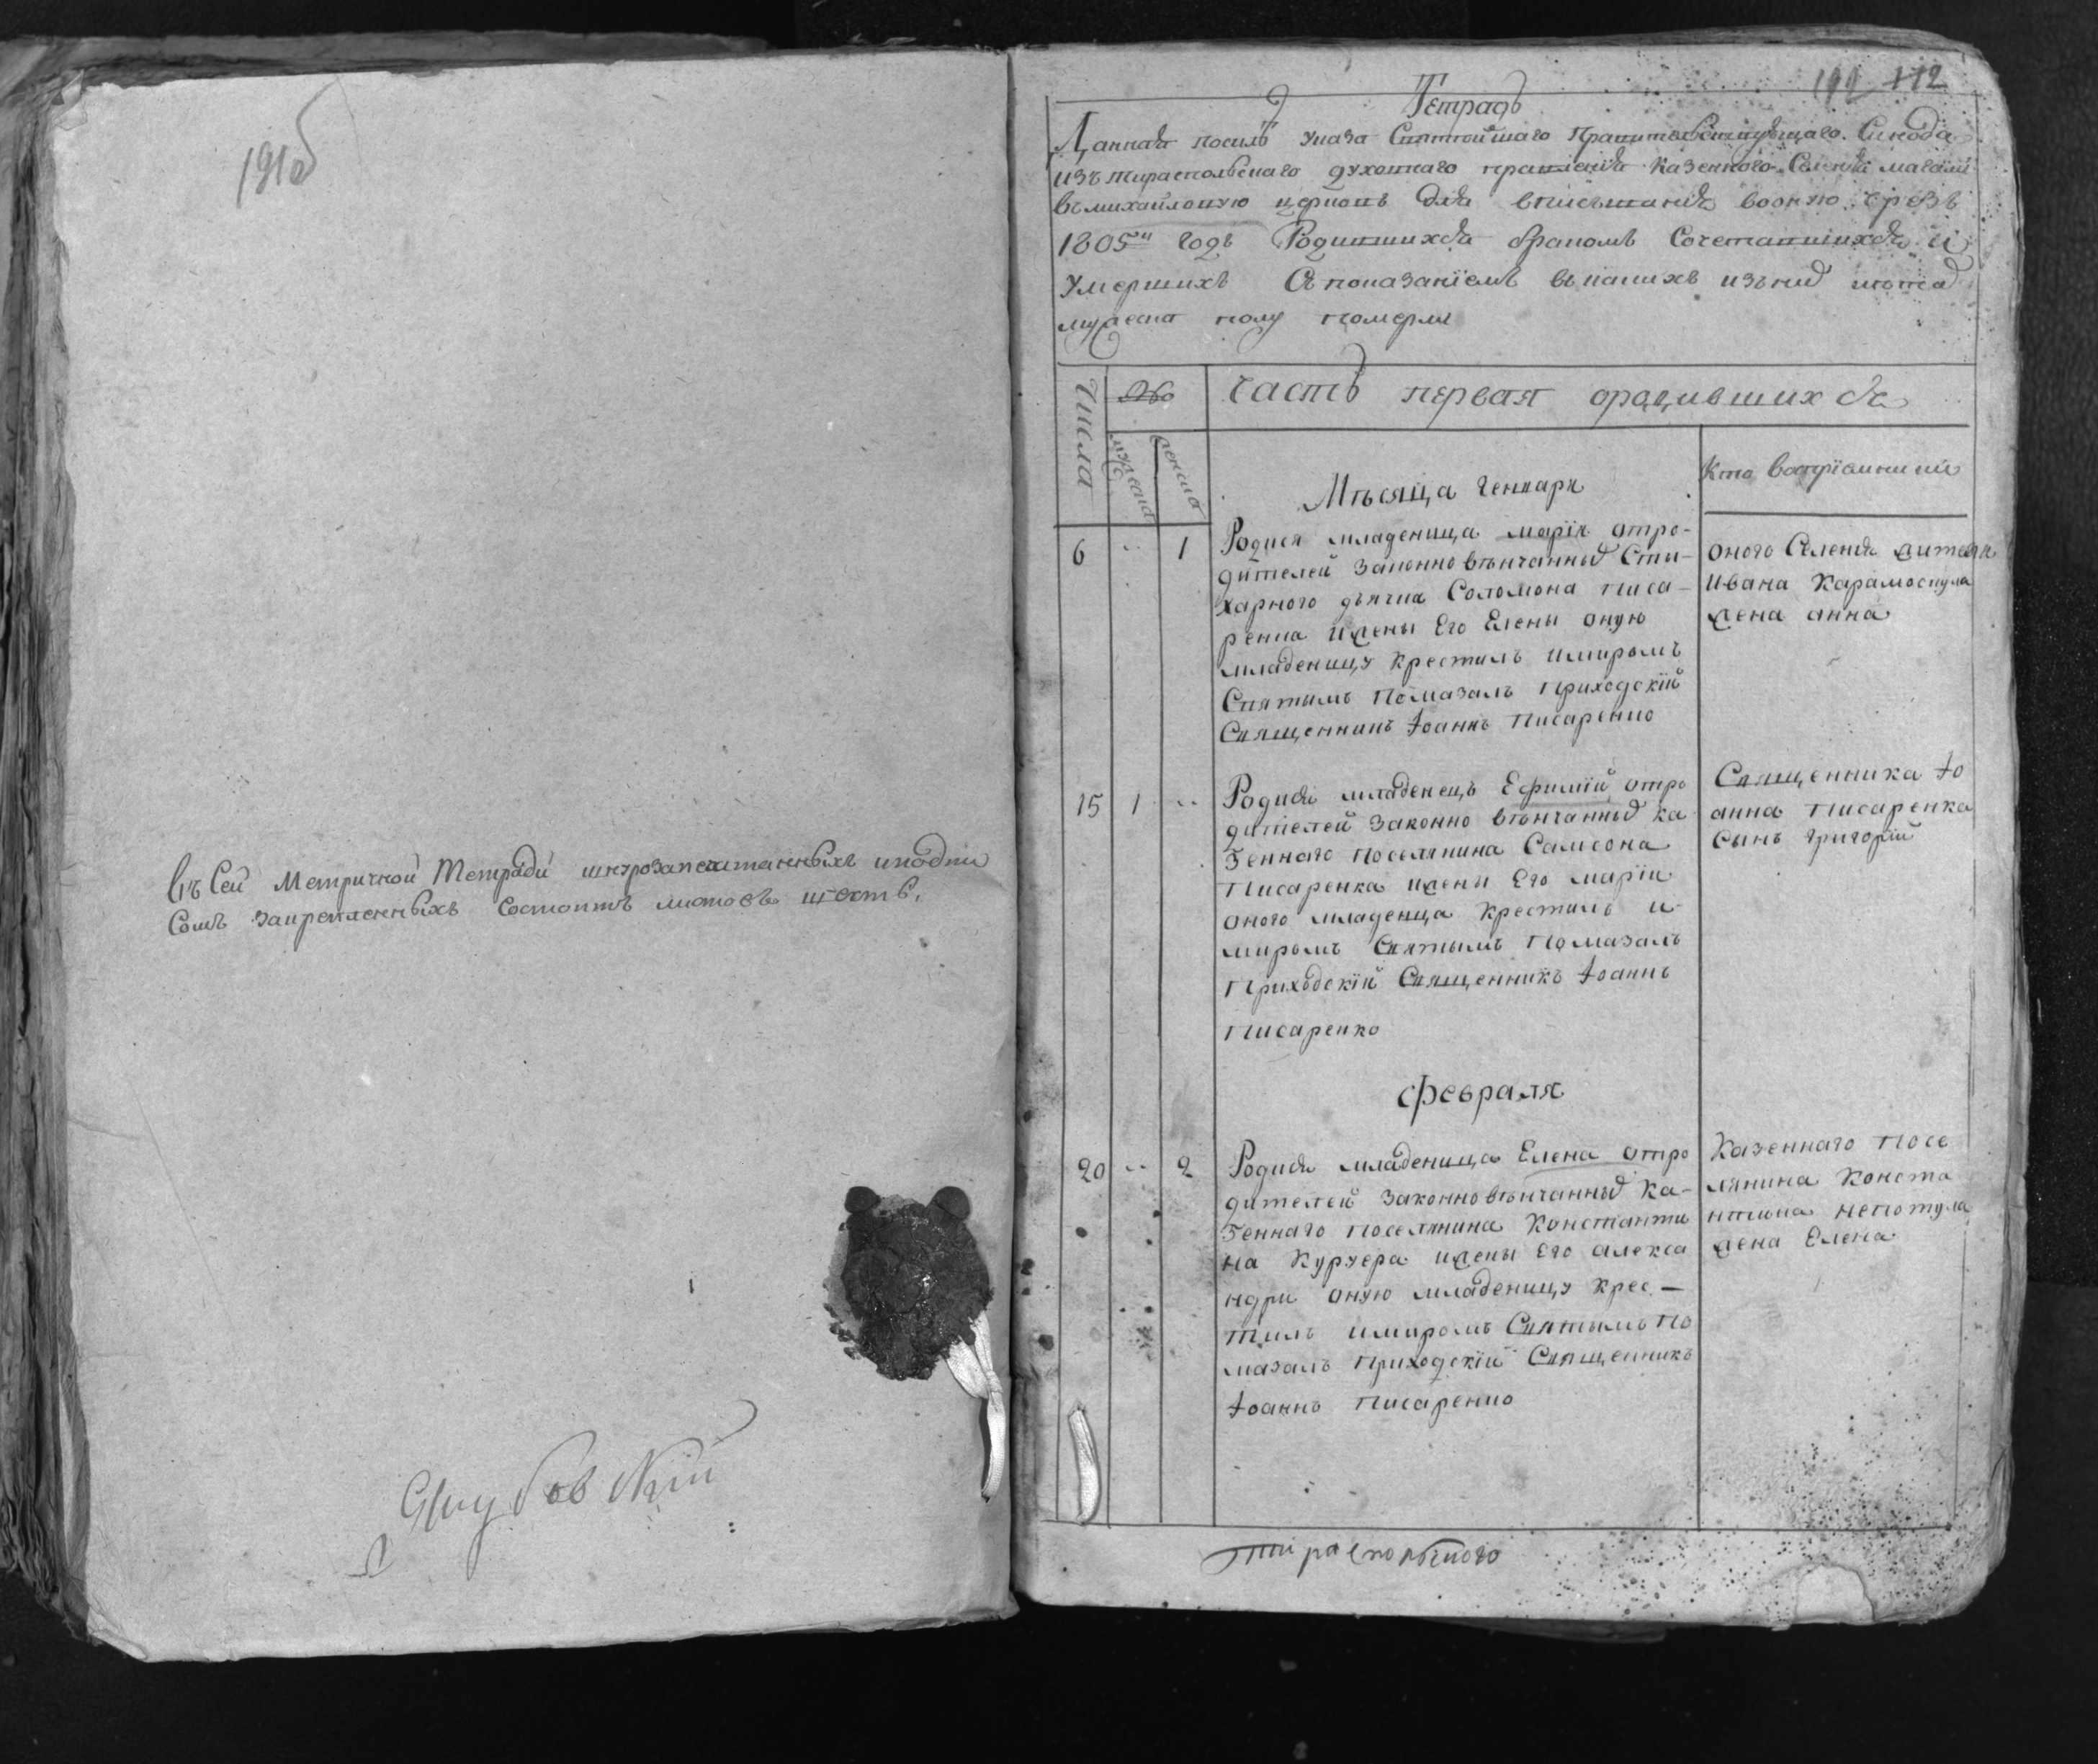 191об
Въ Сей Метричной Тетради шнурозапечатанныхъ иподпи
сомъ закрепленныхъ Состоитъ листовъ шесть.
Якубовский
192 112
Тетрадь
Данная посилѣ Указа Святѣйшаго Правительствующаго Синода
изъ тираспольскаго духовнаго правления казенного Селения малаешт
въ михайловную церковъ для вписывания воную чрезъ
1805й годъ Родившихся бракомъ Сочетавшихся и
умершихъ Спопоказаніемъ
мужеска полу померли
Числа
часть первая ородившихся
мужеска
женска
Мѣсяца генваря
Кто воспріемники
6 .. 1
Родися младеница марія отро-
дителей законно вѣнчанных Сти-
харного дьячка Соломона писа-
ренка ижены Его Елены оную
младеницу крестилъ имиромъ
Святымъ помазалъ приходскій
Священникъ Іоаннъ писаренко
оного Селения жителя
ивана карамоскула
жена анна
15 1 ..
Родися младенецъ Ефимій отро
дителей законно вѣнчанных ка
зеннаго поселянина Самсона
писаренка ижены Его маріи
оного младенца крестилъ и
миромъ Святымъ помазалъ
приходскій Священникъ Іоаннъ
писаренко
Священника Іо
анна писаренка
сынъ григорій
февраля
20 .. 2
Родися младеница Елена отро
дителей законно вѣнчанных ка-
зеннаго поселянина константи
на куруера ижены Его алекса
ндри оную младеницу крес-
тилъ имиромъ Святымъ по
мазалъ приходскій Священникъ
Іоаннъ писаренко
казеннаго посе
лянина конста
нтина непотула
жена Елена
тираспольского